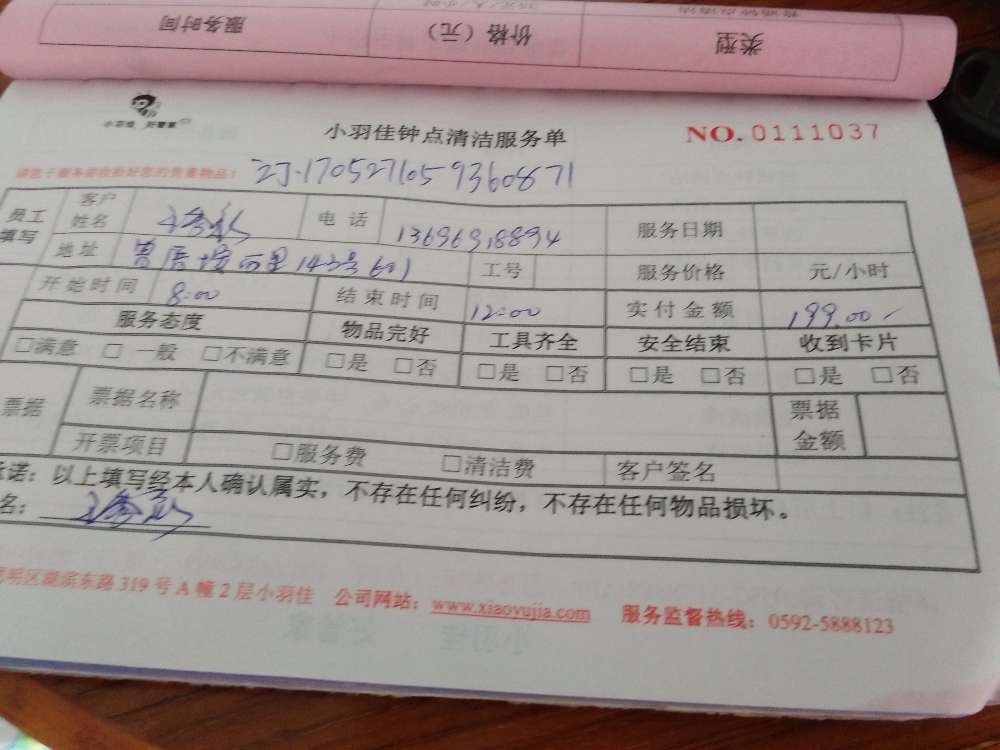 服务时间 价格（元） 类型
小羽佳 好管家
小羽佳钟点清洁服务单
NO. 0111037
请您于服务前收拾好您的贵重物品！
ZJ.1705271059360871
员工填写 客户姓名 电话 13696918894 服务日期
地址 曾厝垵西里143号601 工号 服务价格 元/小时
开始时间 8:00 结束时间 12:00 实付金额 199.00-
服务态度 物品完好 工具齐全 安全结束 收到卡片
□满意 □一般 □不满意 □是 □否 □是 □否 □是 □否 □是 □否
票据 票据名称 票据金额
开票项目 □服务费 □清洁费 客户签名
诺：以上填写经本人确认属实，不存在任何纠纷，不存在任何物品损坏。
名：
明区湖滨东路319号A幢2层小羽佳 公司网站：www.xiaoyujia.com 服务监督热线：0592-5888123